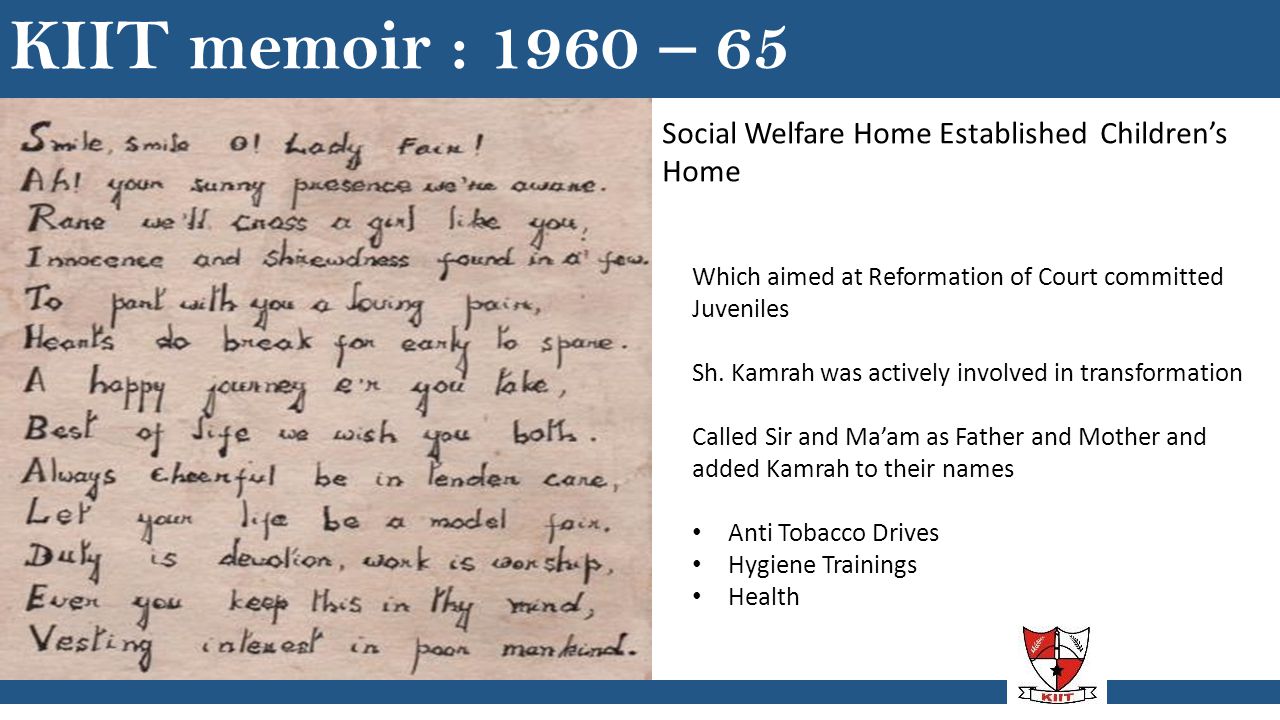 KIIT memoir : 1960 – 65
Smile, smile O! Lady Fair!
Ah! your sunny presence we're aware.
Rare we'll cross a girl like you,
Innocence and shrewdness found in a few.
To part with you a loving pain,
Hearts do break for early to spare.
A happy journey e'r you take,
Best of life we wish you both.
Always cheerful be in tender care,
Let your life be a model fair.
Duty is devotion, work is worship,
Ever you keep this in thy mind,
Vesting interest in poor mankind.
Social Welfare Home Established Children’s
Home
Which aimed at Reformation of Court committed
Juveniles
Sh. Kamrah was actively involved in transformation
Called Sir and Ma’am as Father and Mother and
added Kamrah to their names
• Anti Tobacco Drives
• Hygiene Trainings
• Health
KIIT